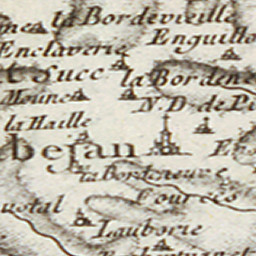 la Bordevieille
Enclaverie
Enguillo
la Bordene
Moune
N.D. de Pi
la Haille
bejan
la Bordeneuve
Courcès
ustal
Lauborie